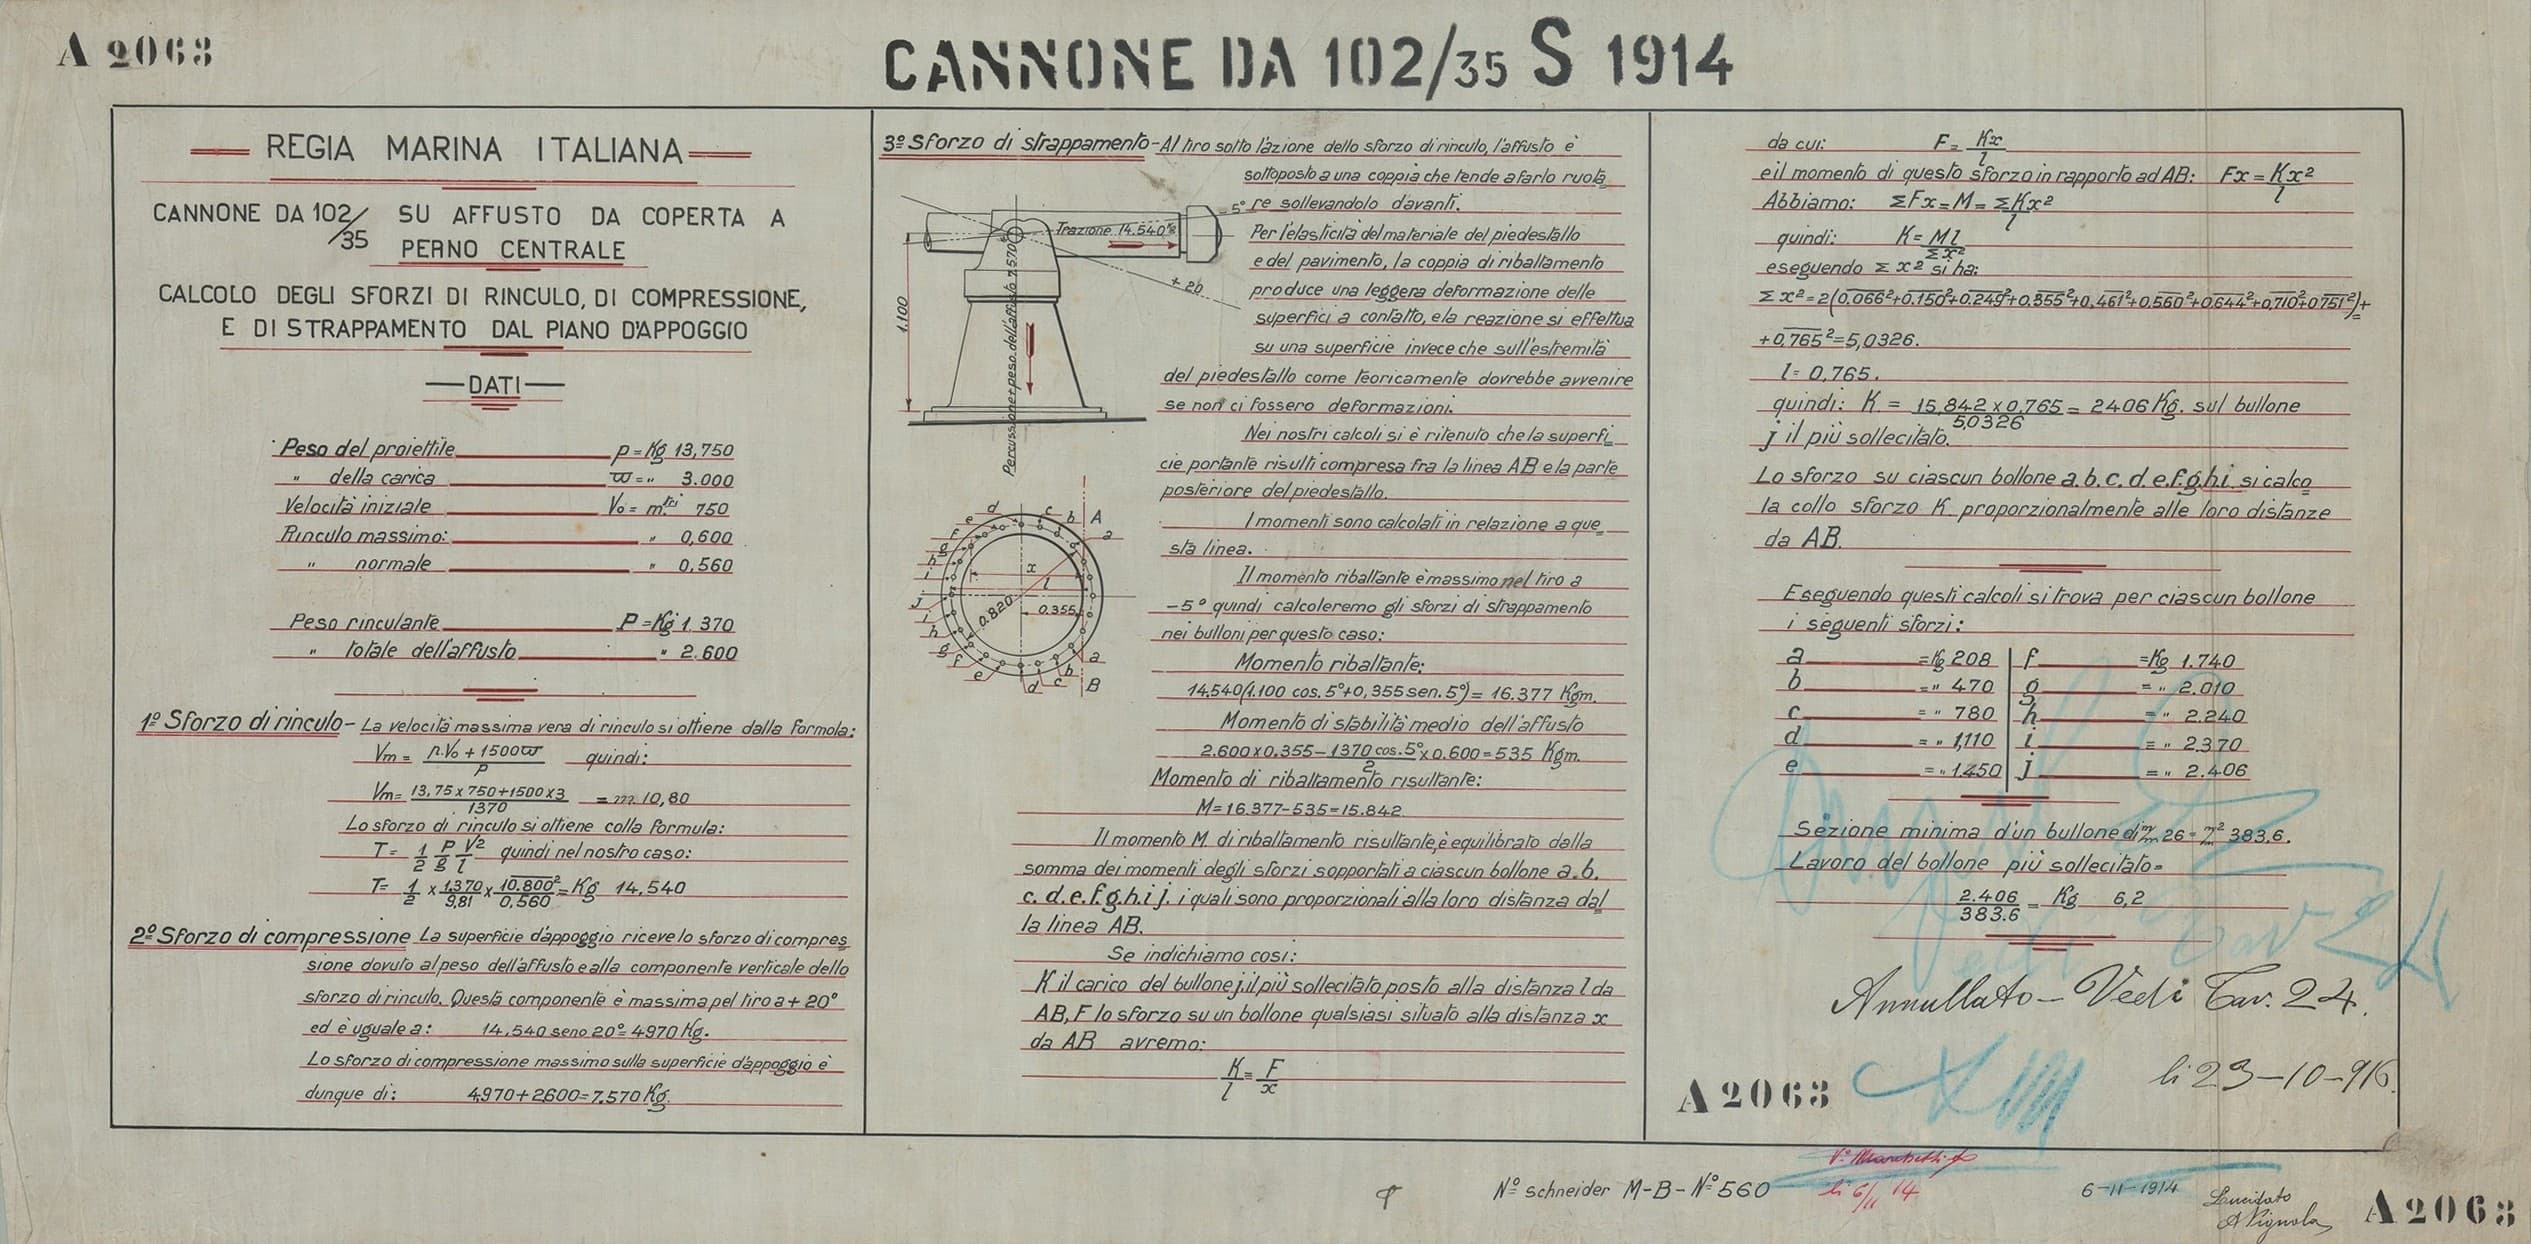 A 2063
CANNONE DA 102/35 S 1914
REGIA MARINA ITALIANA
CANNONE DA 102/35 SU AFFUSTO DA COPERTA A
PERNO CENTRALE
CALCOLO DEGLI SFORZI DI RINCULO, DI COMPRESSIONE,
E DI STRAPPAMENTO DAL PIANO D'APPOGGIO
DATI
Peso del proiettile p = Kg 13,750
" della carica ϖ = " 3.000
Velocità iniziale Vo = m.tri 750
Rinculo massimo: " 0,600
" normale " 0.560
Peso rinculante P = Kg 1.370
" totale dell'affusto " 2.600
1º Sforzo di rinculo - La velocità massima vera di rinculo si ottiene dalla formola:
Vm = p.Vo + 1500ϖ / P quindi:
Vm = 13,75 x 750 + 1500 x 3 / 1370 = m. 10,80
Lo sforzo di rinculo si ottiene colla formula:
T = 1/2 P/g V²/l quindi nel nostro caso:
T = 1/2 x 1,370/9,81 x 10.800²/0,560 = Kg 14,540
2º Sforzo di compressione La superficie d'appoggio riceve lo sforzo di compres=
sione dovuto al peso dell'affusto e alla componente verticale dello
sforzo di rinculo. Questa componente è massima pel tiro a + 20°
ed è uguale a: 14,540 seno 20° = 4970 Kg.
Lo sforzo di compressione massimo sulla superficie d'appoggio è
dunque di: 4,970 + 2600 = 7.570 Kg.
3º Sforzo di strappamento - Al tiro sotto l'azione dello sforzo di rinculo, l'affusto è
sottoposto a una coppia che tende a farlo ruota=
re sollevandolo davanti.
Per l'elasticità del materiale del piedestallo
e del pavimento, la coppia di riballamento
produce una leggera deformazione delle
superfici a contatto, e la reazione si effettua
su una superficie invece che sull'estremità
del piedestallo come teoricamente dovrebbe avvenire
se non ci fossero deformazioni.
Nei nostri calcoli si è ritenuto che la superfi=
cie portante risulti compresa fra la linea AB e la parte
posteriore del piedestallo.
I momenti sono calcolati in relazione a que=
sta linea.
Il momento riballante è massimo nel tiro a
-5° quindi calcoleremo gli sforzi di strappamento
nei bulloni per questo caso:
Momento riballante:
14,540 (1.100 cos. 5° + 0,355 sen. 5°) = 16.377 Kgm.
Momento di stabilità medio dell'affusto
2.600 x 0.355 - 1370 cos. 5°/2 x 0.600 = 535 Kgm.
Momento di riballamento risultante:
M = 16.377 - 535 = 15.842
Il momento M di riballamento risultante, è equilibrato dalla
somma dei momenti degli sforzi sopportati a ciascun bollone a. b.
c. d. e. f. g. h. i j. i quali sono proporzionali alla loro distanza dal=
la linea AB.
Se indichiamo così:
K il carico del bullone j. il più sollecitato posto alla distanza l da
AB, F lo sforzo su un bollone qualsiasi situato alla distanza x
da AB avremo:
K/l = F/x
-5°
Trazione 14.540 Kg
+ 20
1.100
Percussione + peso dell'affusto 7.570 Kg
d c b A
e a
f
g
h
i
j
x
l
0.820
0.355
i
h
g
f
e
d c b a
B
da cui: F = Kx/l
e il momento di questo sforzo in rapporto ad AB: Fx = Kx²/l
Abbiamo: ΣFx = M = ΣKx²/l
quindi: K = Ml/Σx²
eseguendo Σx² si ha:
Σx² = 2(0,066² + 0.150² + 0.249² + 0.355² + 0,461² + 0.560² + 0,644² + 0,710² + 0.751²) +
+ 0,765² = 5,0326.
l = 0,765.
quindi: K = 15,842 x 0,765 / 5,0326 = 2406 Kg. sul bullone
j il più sollecitato.
Lo sforzo su ciascun bollone a. b. c. d. e. f. g. h. i. si calco=
la collo sforzo K proporzionalmente alle loro distanze
da AB.
Eseguendo questi calcoli si trova per ciascun bollone
i seguenti sforzi:
a = Kg 208 f = Kg 1.740
b = " 470 g = " 2.010
c = " 780 h = " 2.240
d = " 1,110 i = " 2.370
e = " 1.450 j = " 2.406
Sezione minima d'un bullone di m/m 26 = m²/m 383,6.
Lavoro del bollone più sollecitato =
2.406/383.6 = Kg 6,2
Annullato - Vedi Tav. 24.
li 23-10-916
A 2063
Nº schneider M-B-Nº 560
li 6/11 14
6-11-1914
Lucidato
A Vignola
A 2063